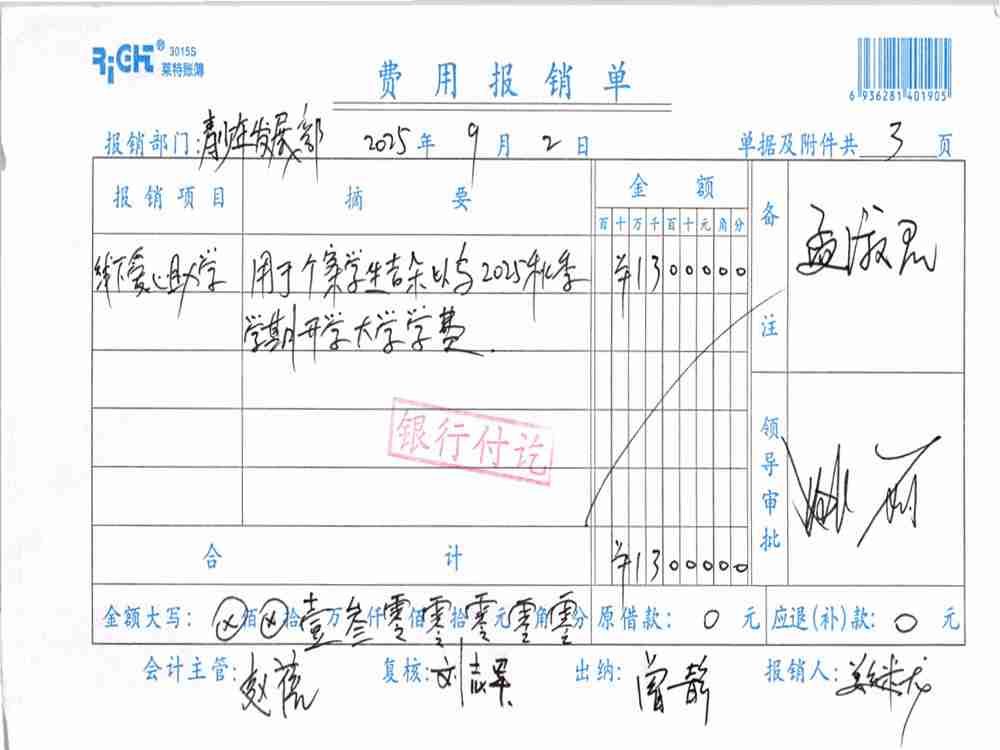 RiGHT® 3015S
莱特账簿
费用报销单
6 936281 401905
报销部门:青少年发展部 2025年9月2日 单据及附件共3页
报销项目 摘要 金额 备注
百十万千百十元角分
线下爱心助学 用于个案学生吉朵以与2025秋季 ¥1300000
学期开学大学学费.
孟淑君
银行付讫
领导审批
合计 ¥1300000
金额大写: ⊗佰⊗拾壹万叁仟零佰零拾零元零角零分 原借款: 0 元 应退(补)款: 0 元
会计主管: 赵蓓 复核: 刘志军 出纳: 曾静 报销人: